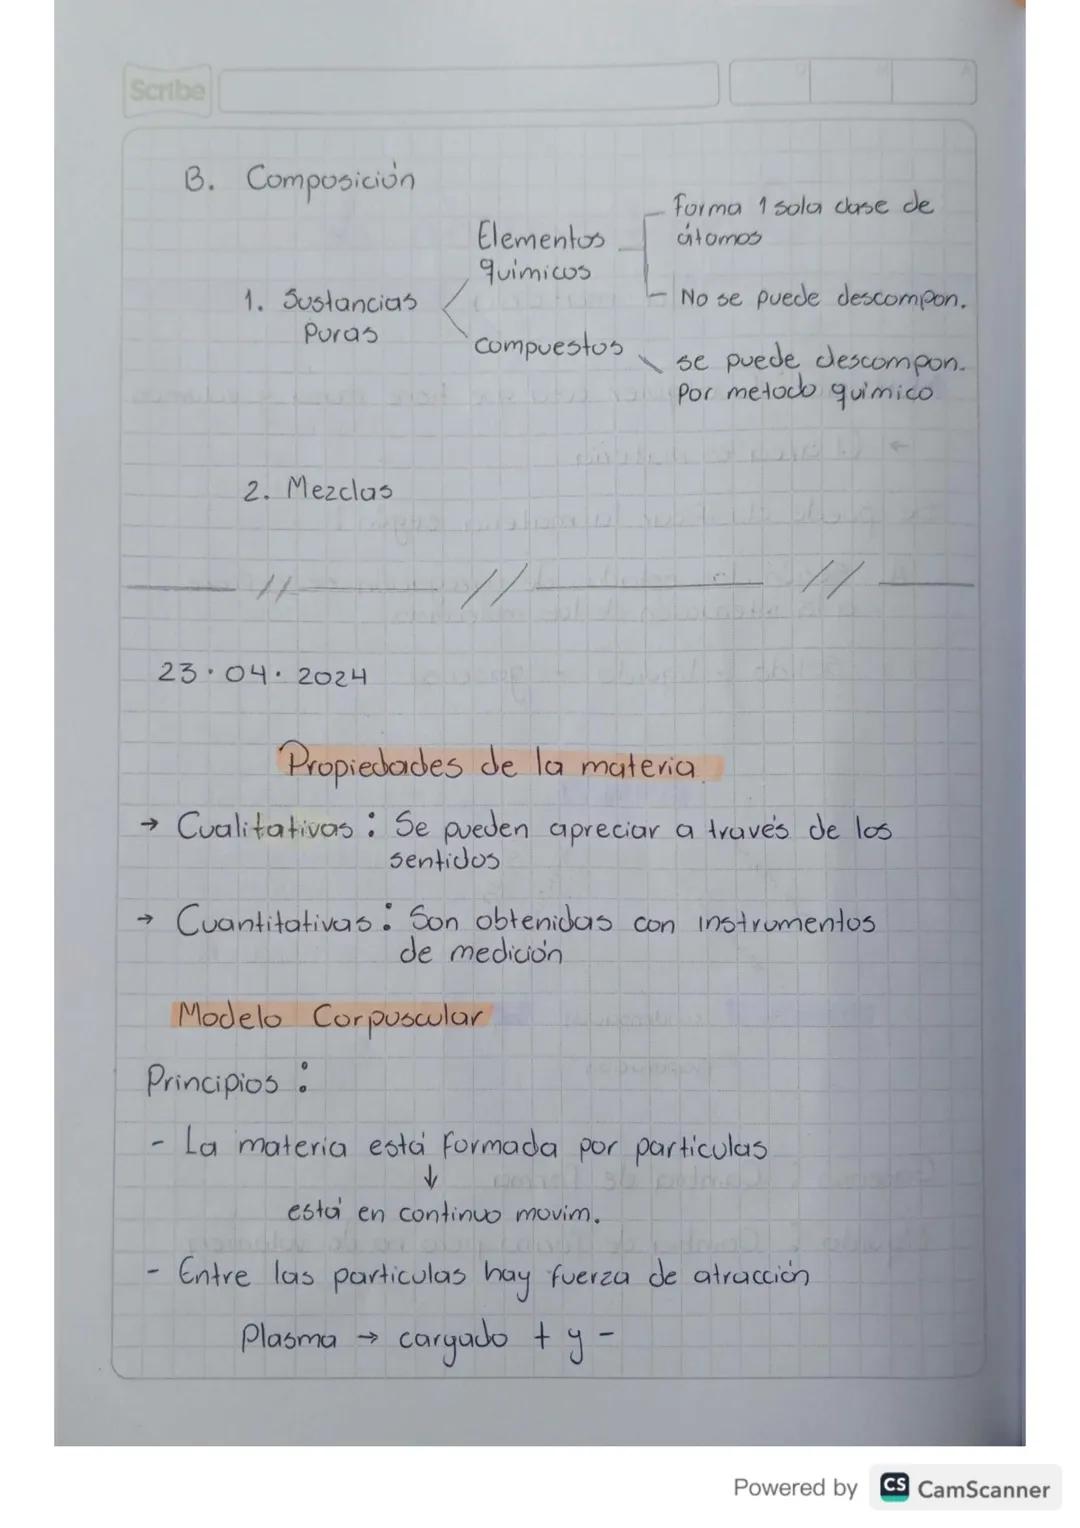 Scribe
B. Composición
Forma 1 sola clase de
átomos
Elementos
químicos
No se puede descompon.
1. Sustancias
Puras
compuestos
se puede descompon.
Por metodo químico
2. Mezclas
23.04.2024
Propiedades de la materia
→ Cualitativas: Se pueden apreciar a través de los
sentidos
→ Cuantitativas: Son obtenidas con instrumentos
de medición
Modelo Corpuscular
Principios:
- La materia está formada por particulas
↓
está en continuo movim.
- Entre las particulas hay fuerza de atracción
Plasma → cargado + y -
Powered by CS CamScanner